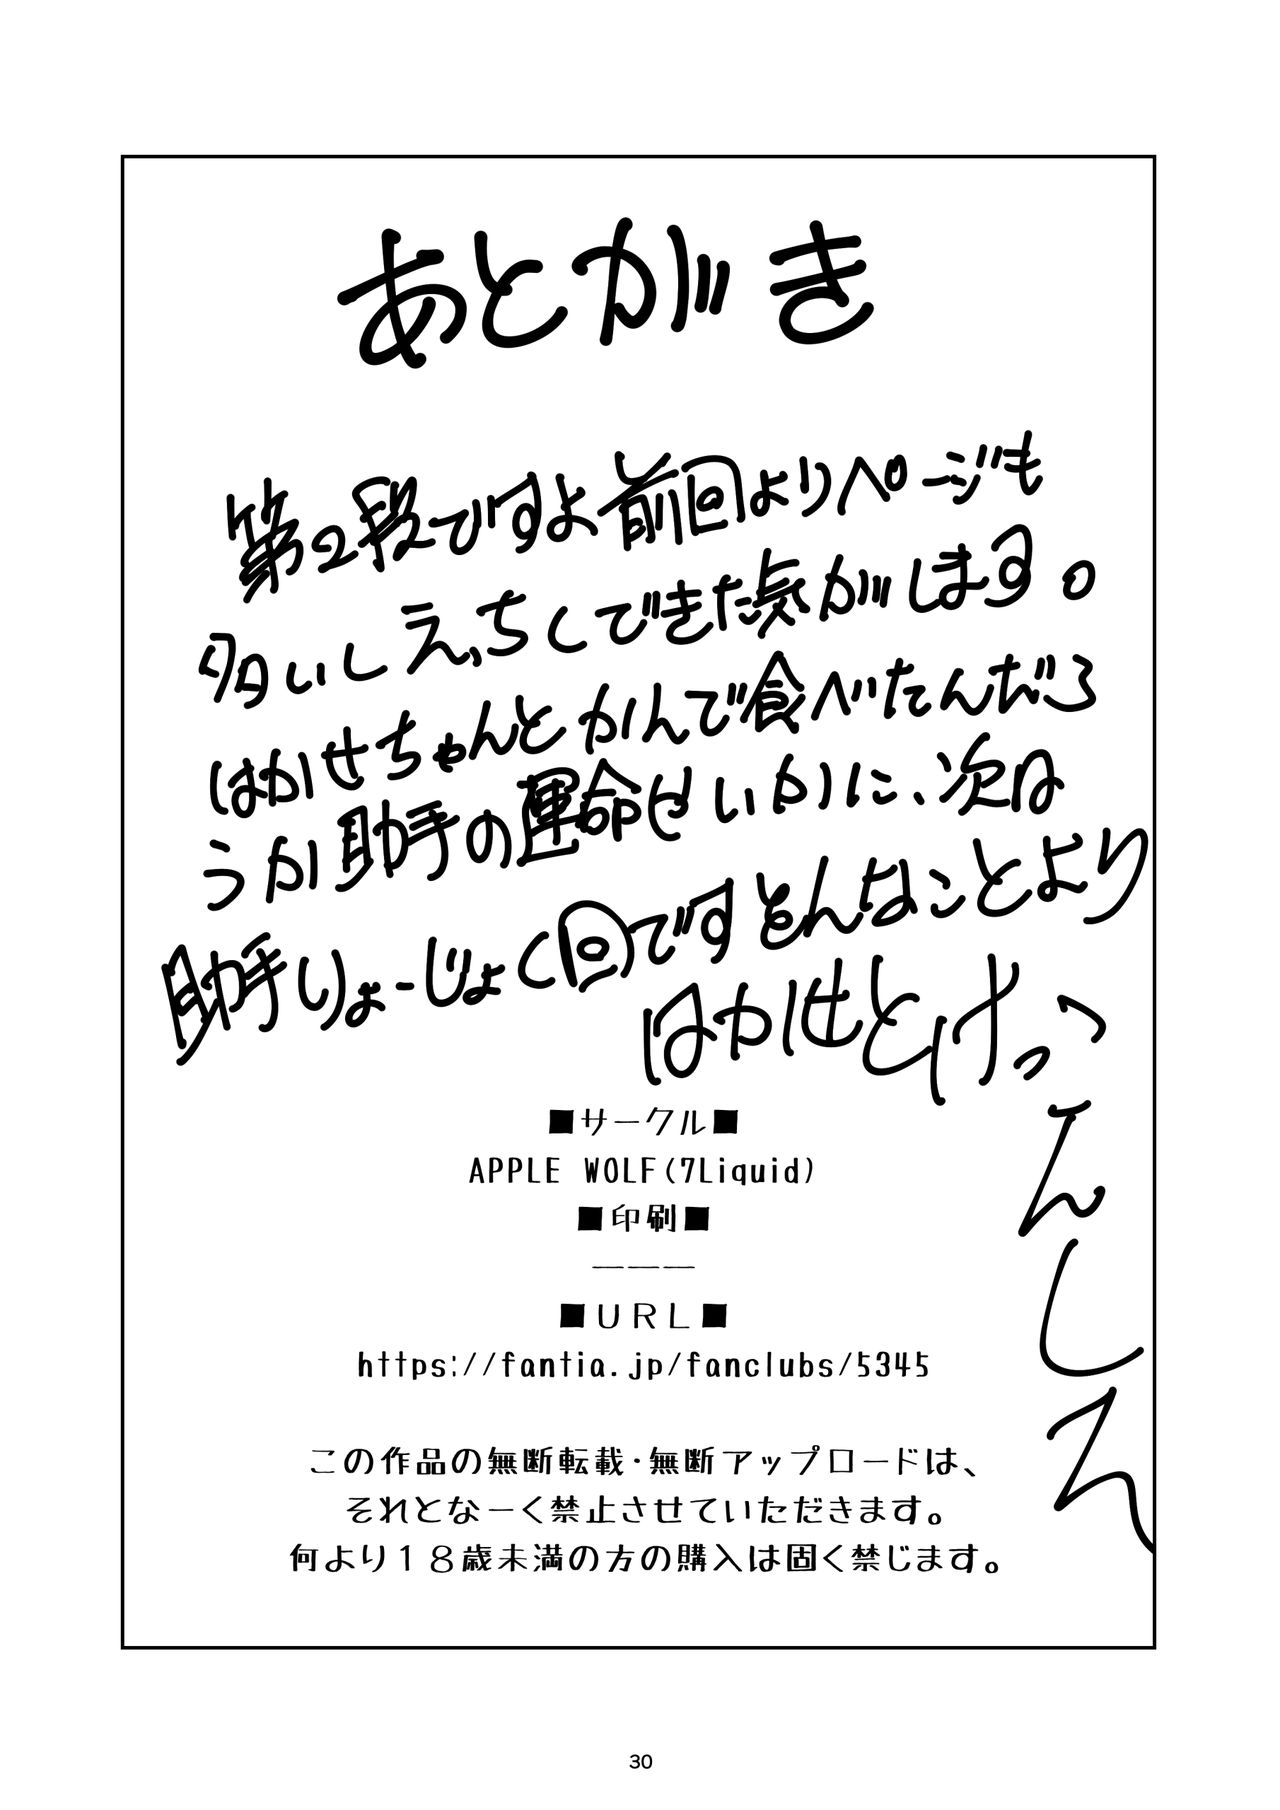 あとがき
第2段ですよ前回よりページも
多いしえっちくできた気がします。
はかせちゃんとかんで食べたんだろ
うか助手の運命はいかに、次は
助手りょーじょく回ですそんなことより
はかせとけっこんしろ
■サークル■
APPLE WOLF(7Liquid)
■印刷■
―――
■URL■
https://fantia.jp/fanclubs/5345
この作品の無断転載・無断アップロードは、
それとなーく禁止させていただきます。
何より18歳未満の方の購入は固く禁じます。
30